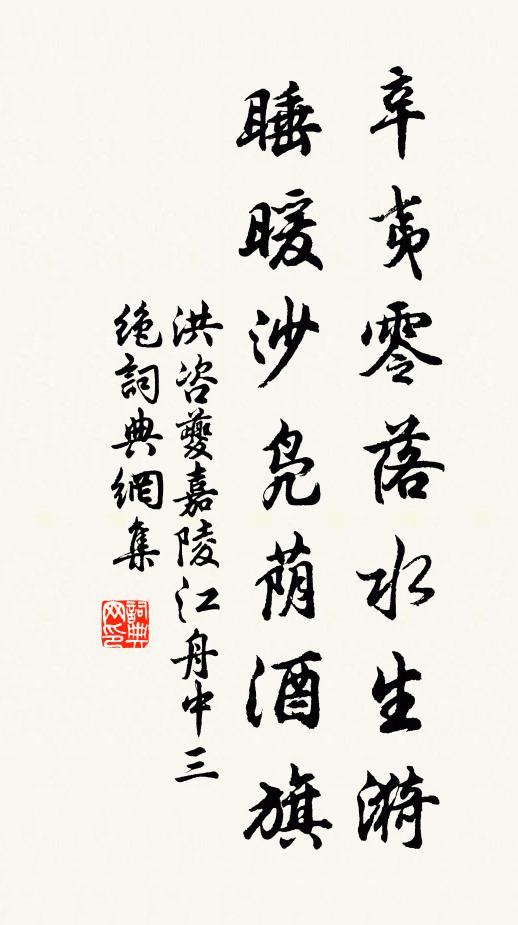 辛夷零落水生漪
睡暖沙凫荫酒旗
洪咨夔嘉陵江舟中三
绝詞典網集
詞典网印